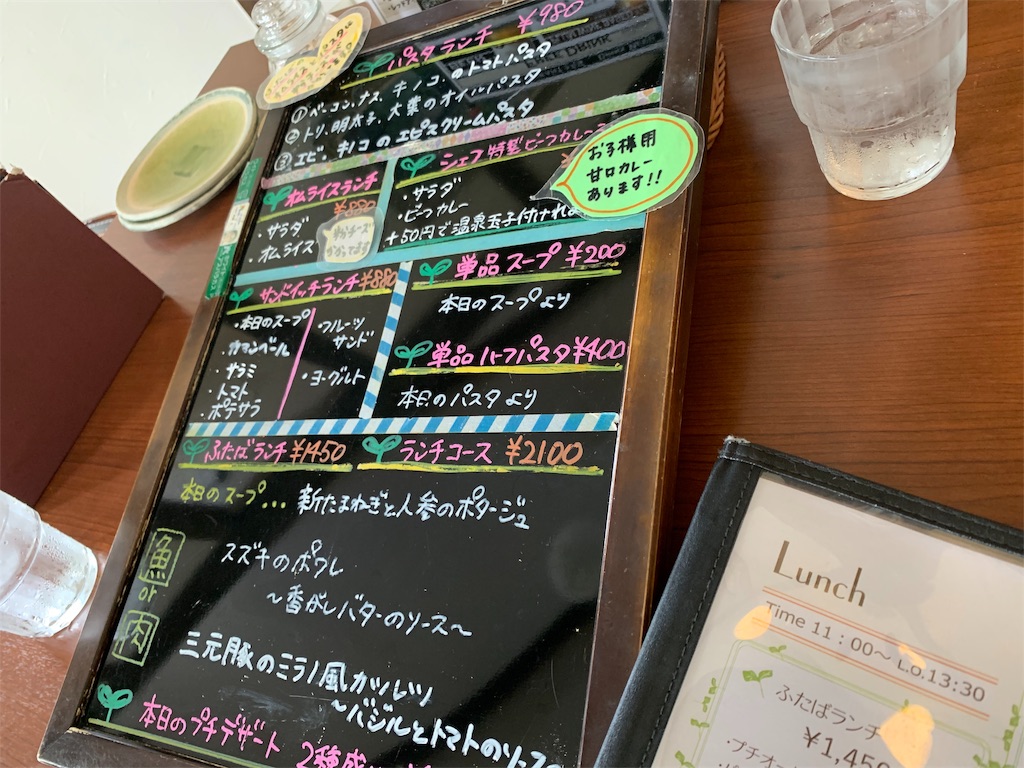 パスタランチ ¥980
①ベーコン、ナス、キノコのトマトパスタ
②トリ、明太子、大葉のオイルパスタ
③エビ、キノコのエピスクリームパスタ
オムライスランチ
¥880
・サラダ
・オムライス
粉チーズ
かかってます
シェフ特製ビーフカレー
・サラダ
・ビーフカレー
+50円で温泉玉子付けれ
お子様用
甘口カレー
あります!!
サンドイッチランチ¥880
・本日のスープ
・カマンベール
・サラミ
・トマト
・ポテサラ
・フルーツ
サンド
・ヨーグルト
単品スープ ¥200
本日のスープより
単品ハーフパスタ¥400
本日のパスタより
ふたばランチ ¥1450
ランチコース ¥2100
本日のスープ... 新たまねぎと人参のポタージュ
魚
or
肉
スズキのポワレ
〜香がしバターのソース〜
三元豚のミラノ風カツレツ
〜バジルとトマトのソース
本日のプチデザート 2種
Lunch
Time 11：00〜 L.o.13:30
ふたばランチ
¥1,450
・プチオー